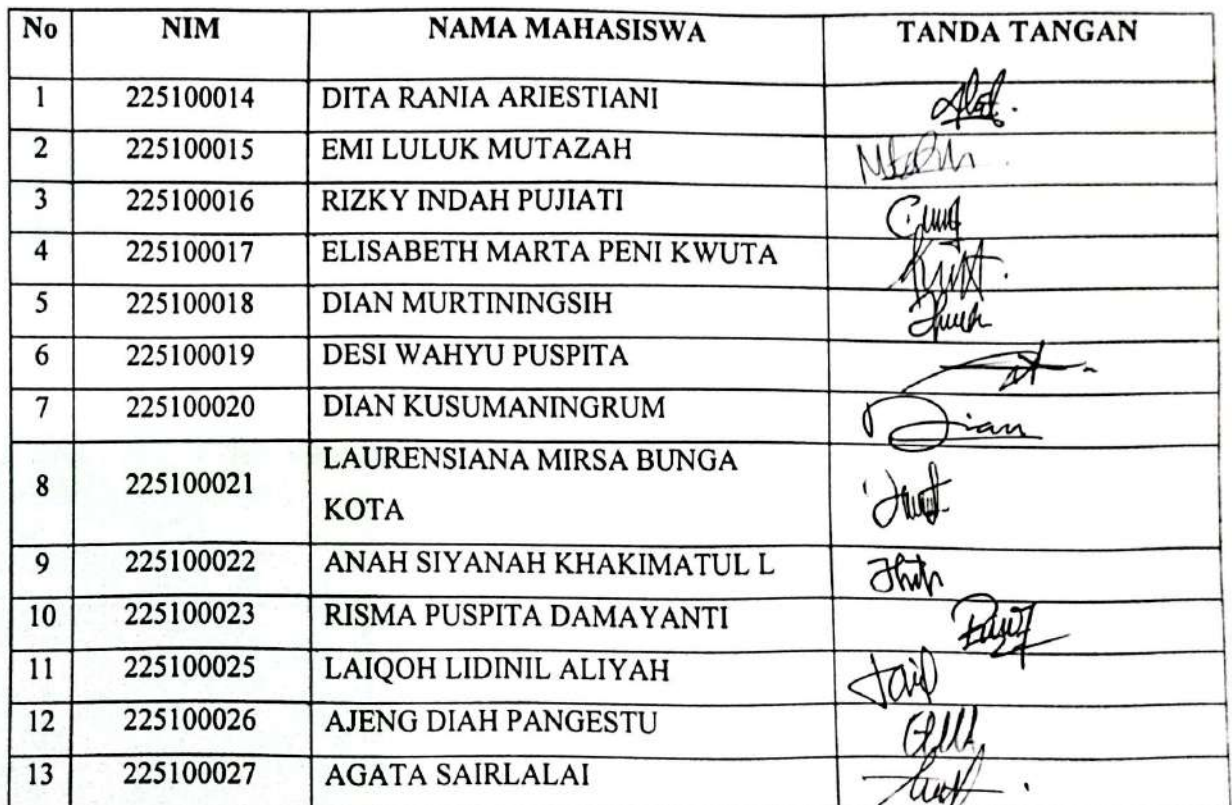 No NIM NAMA MAHASISWA TANDA TANGAN
1 225100014 DITA RANIA ARIESTIANI
2 225100015 EMI LULUK MUTAZAH
3 225100016 RIZKY INDAH PUJIATI
4 225100017 ELISABETH MARTA PENI KWUTA
5 225100018 DIAN MURTININGSIH
6 225100019 DESI WAHYU PUSPITA
7 225100020 DIAN KUSUMANINGRUM Dian
8 225100021 LAURENSIANA MIRSA BUNGA
KOTA
9 225100022 ANAH SIYANAH KHAKIMATUL L
10 225100023 RISMA PUSPITA DAMAYANTI
11 225100025 LAIQOH LIDINIL ALIYAH
12 225100026 AJENG DIAH PANGESTU
13 225100027 AGATA SAIRLALAI